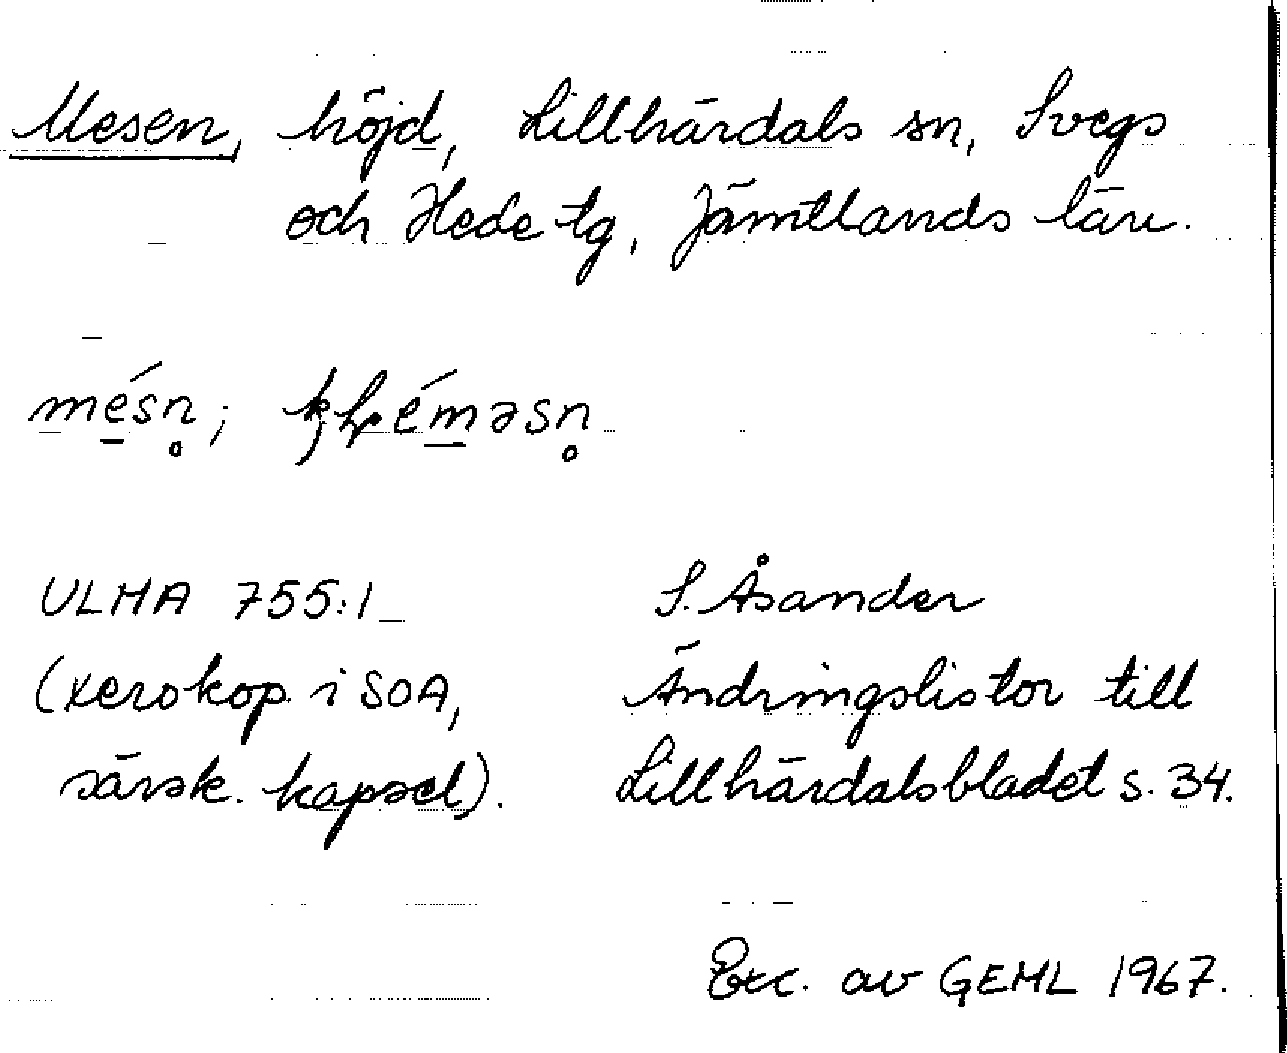 Mesen, höjd, Lillhärdals sn, Svegs
och Hede tg, Jämtlands län.
mésn̥;
ULMA 755:1
(xerokop. i SOA,
särsk. kapsel).
S. Åsander
Ändringslistor till
Lillhärdalsbladet s. 34.
Exc. av GEML 1967.